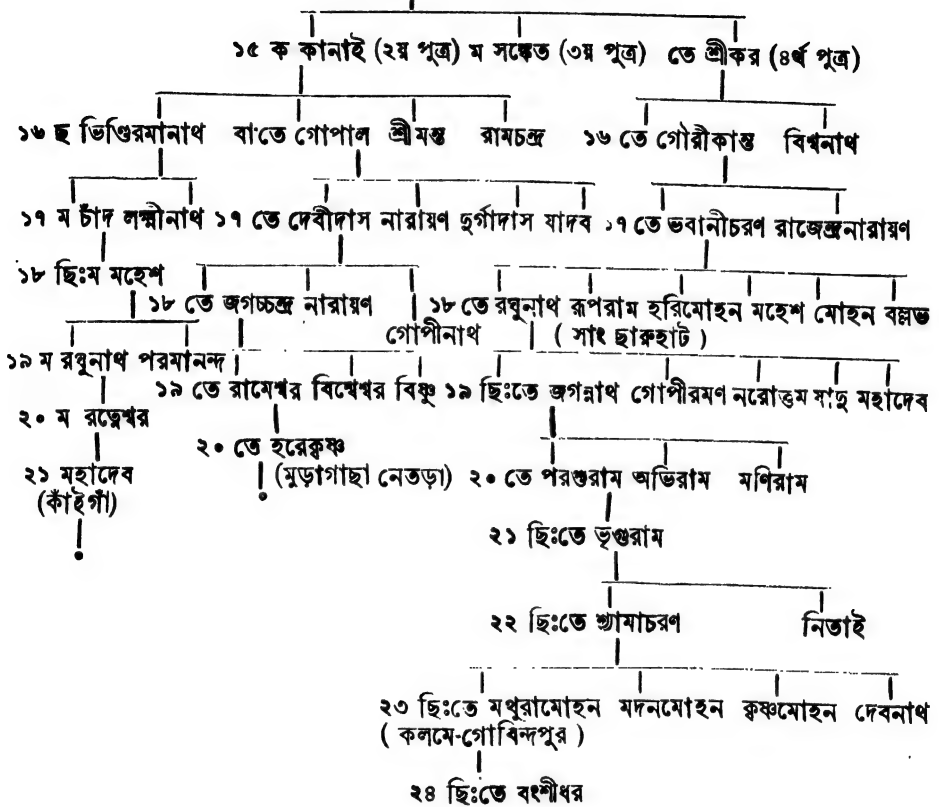 ১৫ ক কানাই (২য় পুত্র) ম সঙ্কেত (৩য় পুত্র) তে শ্রীকর (৪র্থ পুত্র)
১৬ ছ ভিণ্ডিরমানাথ বা'তে গোপাল শ্রীমন্ত রামচন্দ্র ১৬ তে গৌরীকান্ত বিশ্বনাথ
১৭ ম চাঁদ লক্ষ্মীনাথ ১৭ তে দেবীদাস নারায়ণ দুর্গাদাস যাদব ১৭ তে ভবানীচরণ রাজেন্দ্রনারায়ণ
১৮ ছিঃম মহেশ
১৮ তে জগচ্চন্দ্র নারায়ণ ১৮ তে রঘুনাথ রূপরাম হরিমোহন মহেশ মোহন বল্লভ
গোপীনাথ ( সাং ছারুহাট )
১৯ ম রঘুনাথ পরমানন্দ
১৯ তে রামেশ্বর বিশ্বেশ্বর বিষ্ণু ১৯ ছিঃতে জগন্নাথ গোপীরমণ নরোত্তম যাদু মহাদেব
২০ ম রত্নেশ্বর
২০ তে হরেকৃষ্ণ
২১ মহাদেব (মুড়াগাছা নেতড়া) ২০ তে পরশুরাম অভিরাম মণিরাম
(কাঁইগাঁ)
২১ ছিঃতে ভৃগুরাম
২২ ছিঃতে শ্যামাচরণ নিতাই
২৩ ছিঃতে মথুরামোহন মদনমোহন কৃষ্ণমোহন দেবনাথ
( কলমে-গোবিন্দপুর )
২৪ ছিঃতে বংশীধর